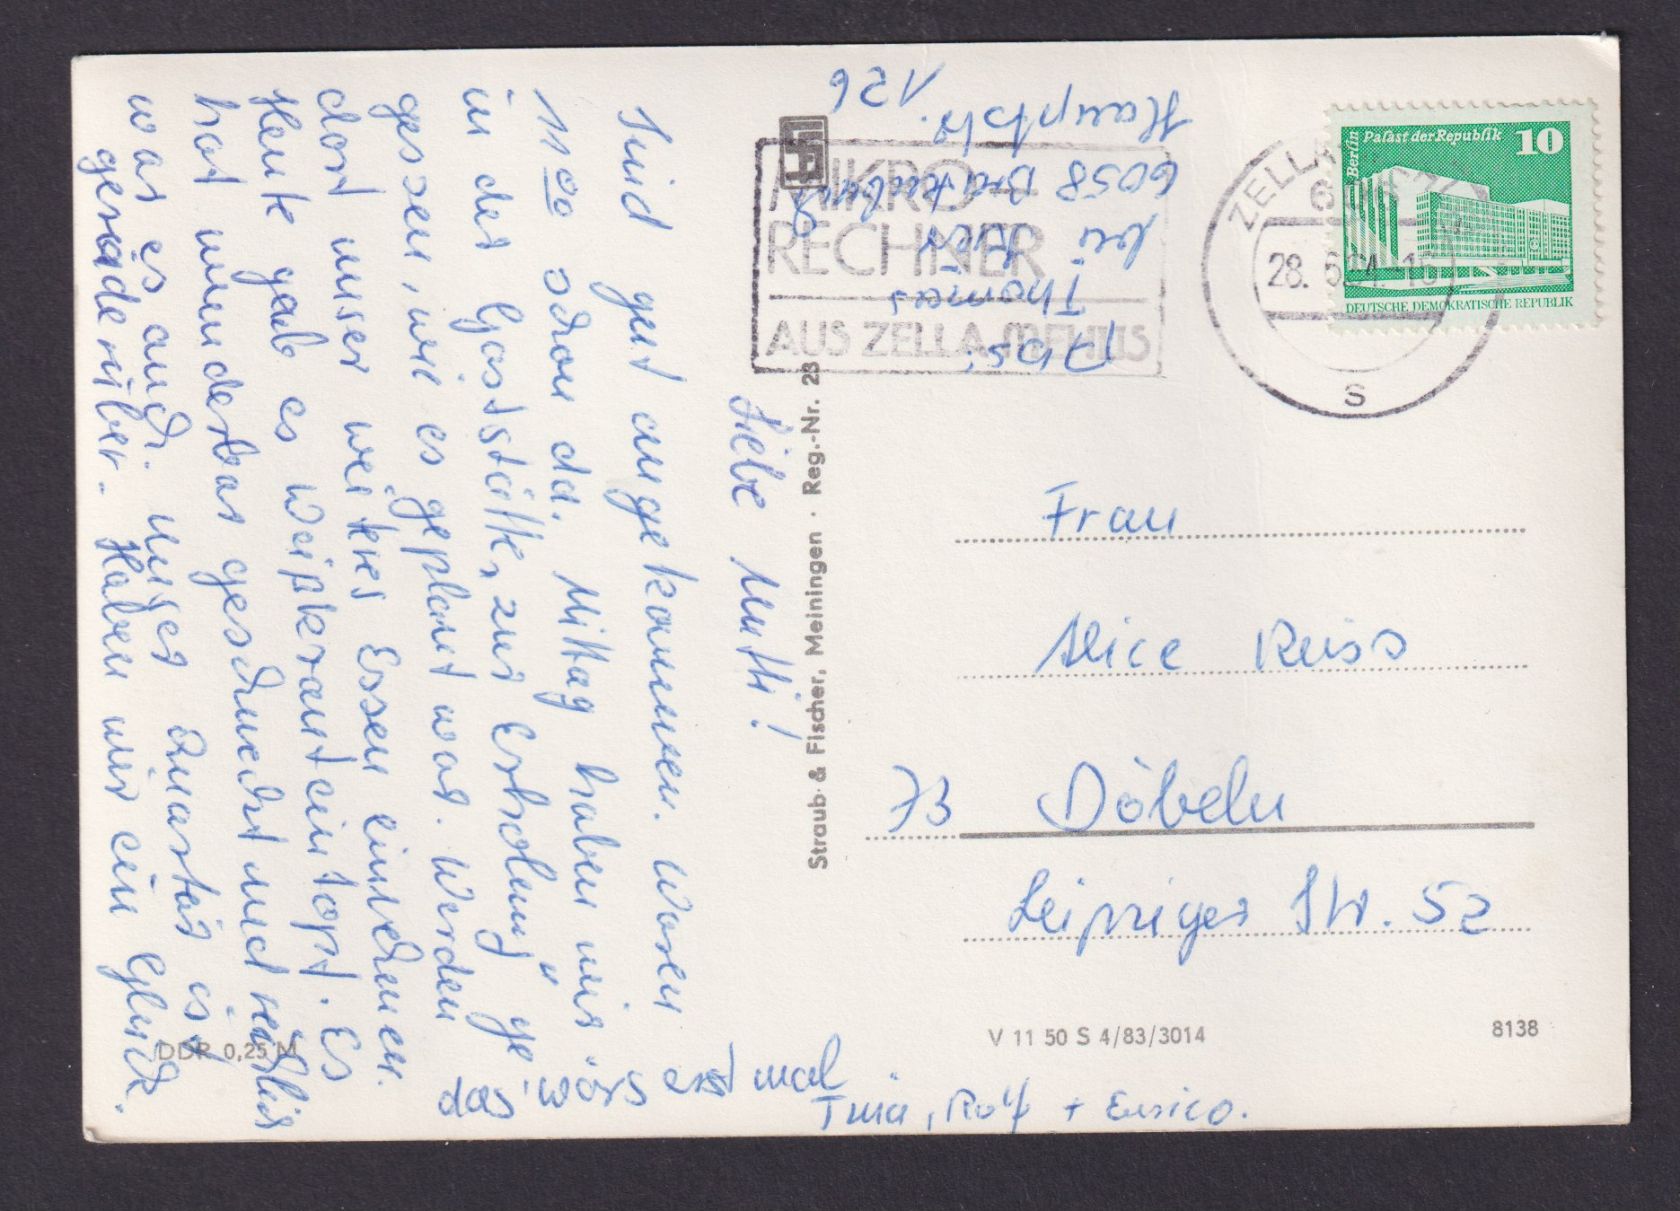 Liebe Mutti!
Sind gut angekommen. Waren
11.00 schon da. Mittag haben wir
in der Gaststätte „zur Erholung" ge
gessen, wie es geplant war. Werden
dort unser weiteres Essen einnehmen.
Heute gab es Weißkrauteintopf. Es
hat wunderbar geschmeckt und reichlich
war es auch. Unser Quartier is
gerade rüber. Haben wir ein Glück.
das wärs erst mal
Tina, Rolf + Enrico.
Abs:
Thomas
bei
6058
Hauptstr.
126
MIKRO-
RECHNER
AUS ZELLA-MEHLIS
ZELLA-
28. 6.84.-16
s
Berlin
Palast der Republik
10
DEUTSCHE DEMOKRATISCHE REPUBLIK
Frau
Alice Reiss
73 Döbeln
Leipziger Str. 52
Straub & Fischer, Meiningen · Reg.-Nr. 23
DDR 0,25 M
V 11 50 S 4/83/3014
8138